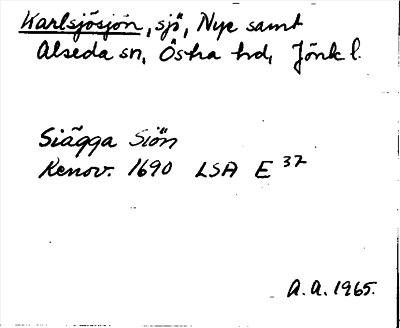 Karlsjösjön, sjö, Nye samt
Alseda sn, Östra hd, Jönk l.
Siägga Siön
Renov. 1690 LSA E 37
A.A. 1965.